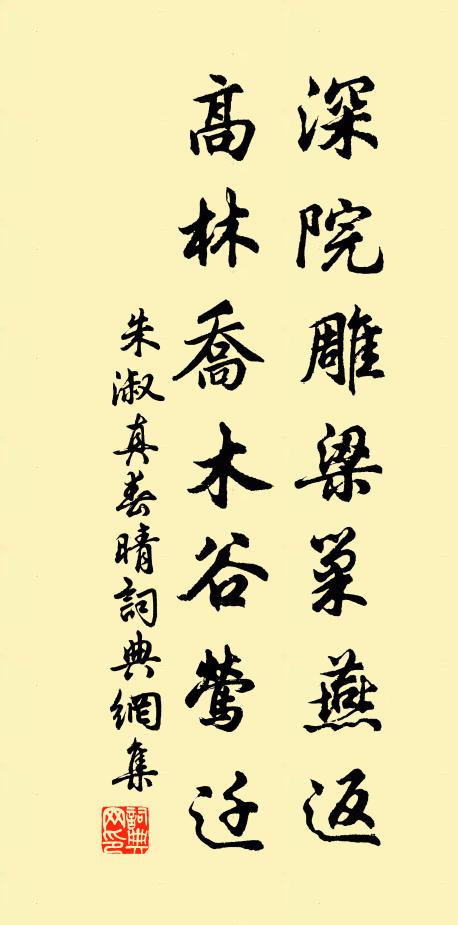 深院雕梁巢燕返
高林喬木谷鶯迁
朱淑真春晴詞典網集
詞典網印